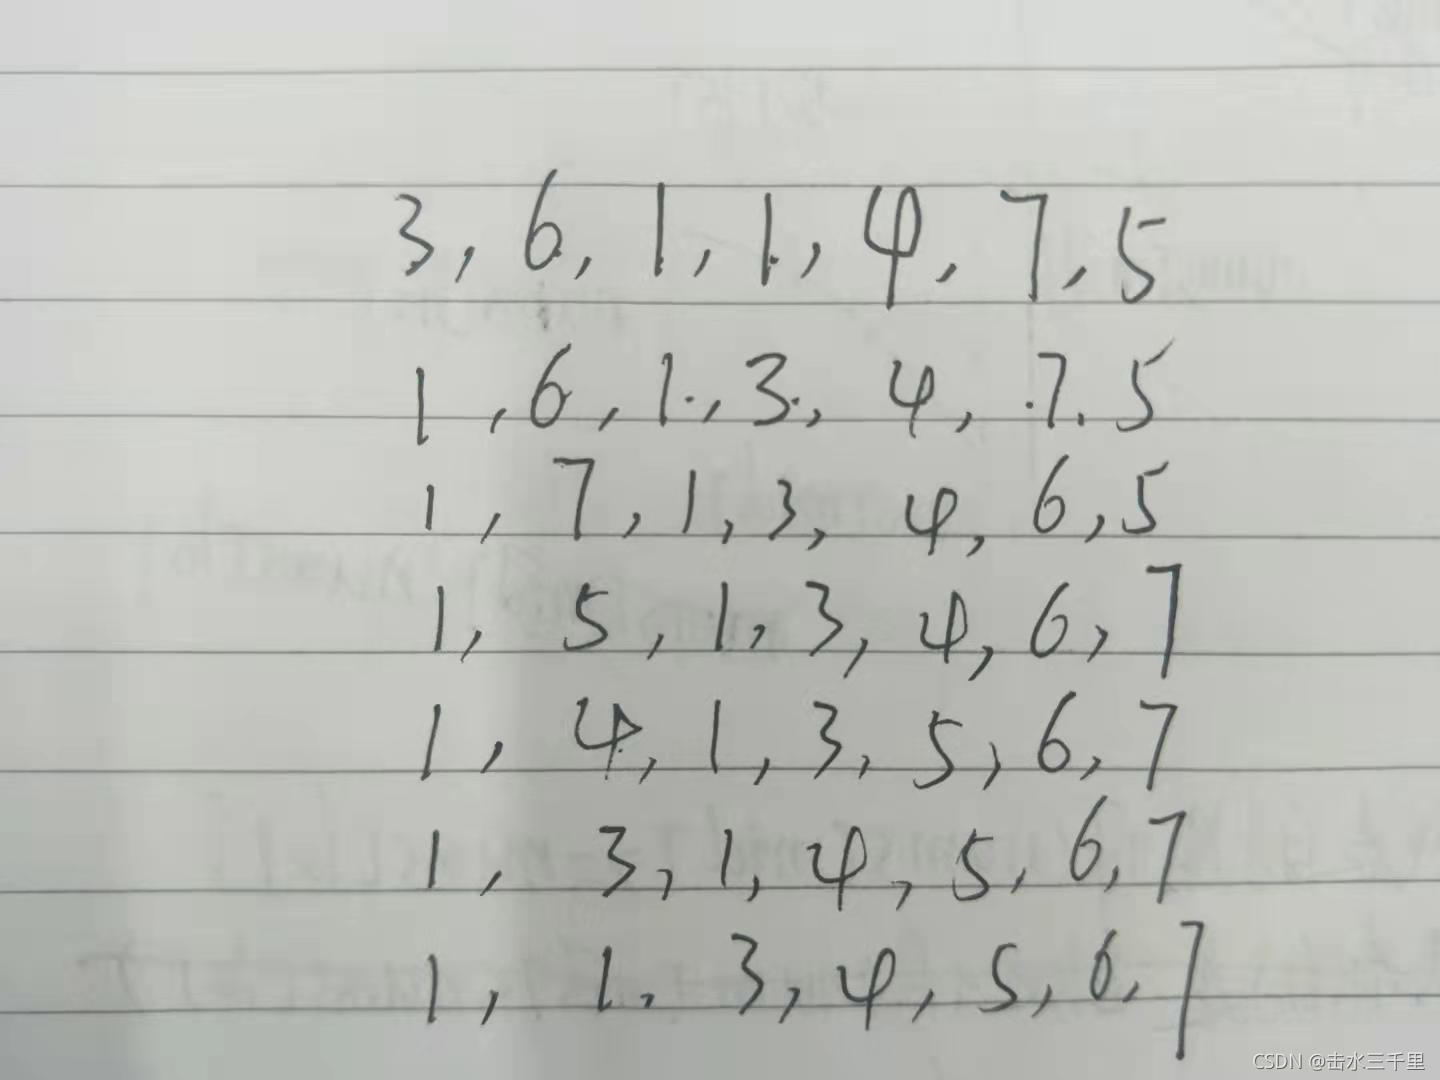 3, 6, 1, 1, 4, 7, 5
1, 6, 1, 3, 4, 7. 5
1, 7, 1, 3, 4, 6, 5
1, 5, 1, 3, 4, 6, 7
1, 4, 1, 3, 5, 6, 7
1, 3, 1, 4, 5, 6, 7
1, 1, 3, 4, 5, 6, 7
CSDN @击水三千里